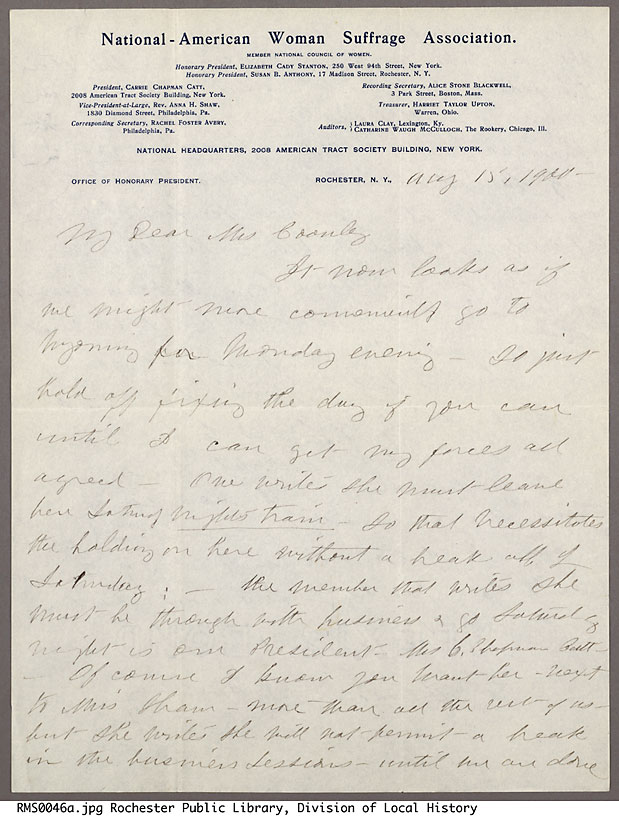 National-American Woman Suffrage Association.
MEMBER NATIONAL COUNCIL OF WOMEN.
Honorary President, ELIZABETH CADY STANTON, 250 West 94th Street, New York.
Honorary President, SUSAN B. ANTHONY, 17 Madison Street, Rochester, N. Y.
President, CARRIE CHAPMAN CATT,
2008 American Tract Society Building, New York.
Vice-President-at-Large, REV. ANNA H. SHAW,
1830 Diamond Street, Philadelphia, Pa.
Corresponding Secretary, RACHEL FOSTER AVERY,
Philadelphia, Pa.
Recording Secretary, ALICE STONE BLACKWELL,
3 Park Street, Boston, Mass.
Treasurer, HARRIET TAYLOR UPTON,
Warren, Ohio.
Auditors, { LAURA CLAY, Lexington, Ky.
CATHARINE WAUGH McCULLOCH, The Rookery, Chicago, Ill.
NATIONAL HEADQUARTERS, 2008 AMERICAN TRACT SOCIETY BUILDING, NEW YORK.
OFFICE OF HONORARY PRESIDENT.
ROCHESTER, N. Y., Aug 15, 1900-
My Dear Mrs Coonley
It now looks as if
we might more conveniently go to
Wyoming for Monday evening - So just
hold off fixing the day if you can
until I can get my forces all
agreed - One writes she must leave
here Saturday nights train - So that necessitates
the holding on here without a break all of
Saturday; - the member that writes she
must be through with business & go Saturday
night is our President - Mrs C. Chapman Catt -
- Of course I know you want her - next
to Miss Shaw - more than all the rest of us -
but she writes she will not permit a break
in the business sessions - until we are done
RMS0046a.jpg Rochester Public Library, Division of Local History